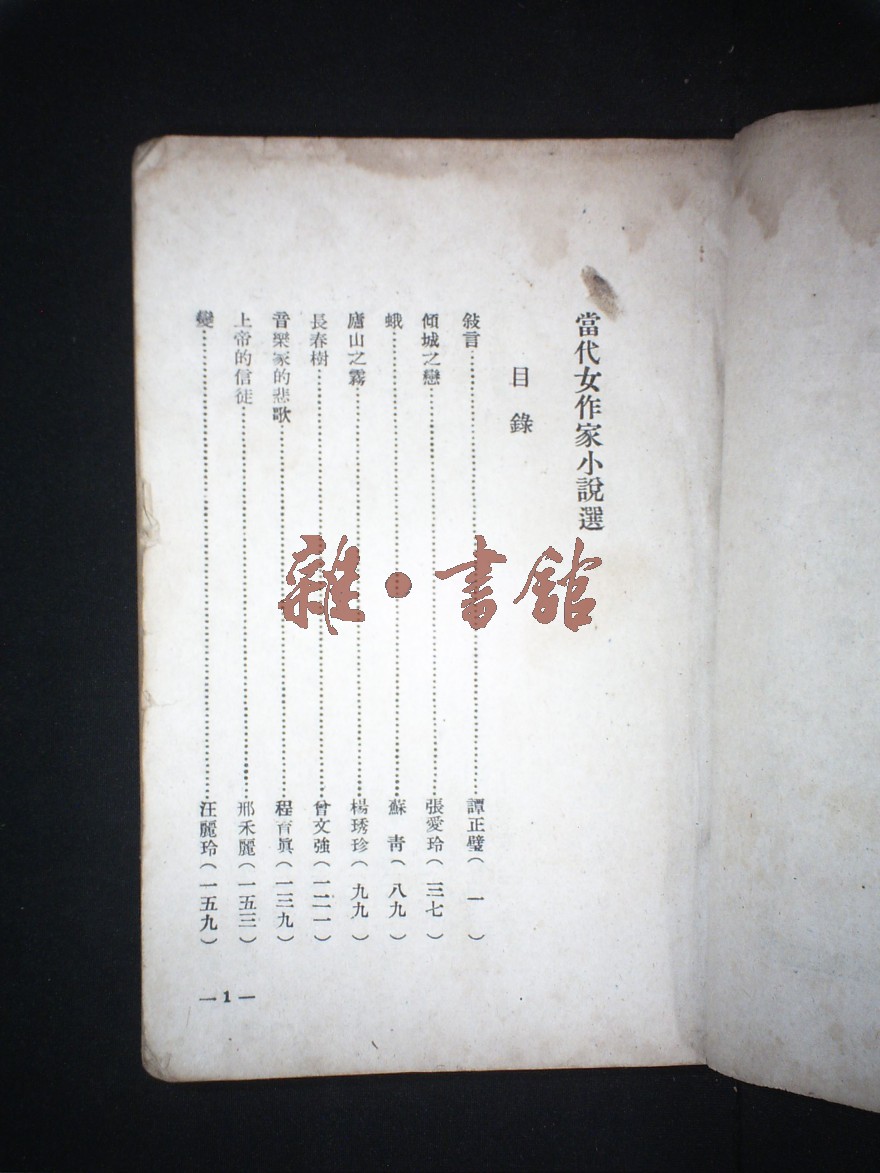 當代女作家小說選
目錄
敍言……譚正璧（一）
傾城之戀……張愛玲（三七）
蛾……蘇青（八九）
廬山之霧……楊琇珍（九九）
長春樹……曾文強（一二一）
音樂家的悲歌……程育眞（一三九）
上帝的信徒……邢禾麗（一五三）
變……汪麗玲（一五九）
—1—
雜·書館